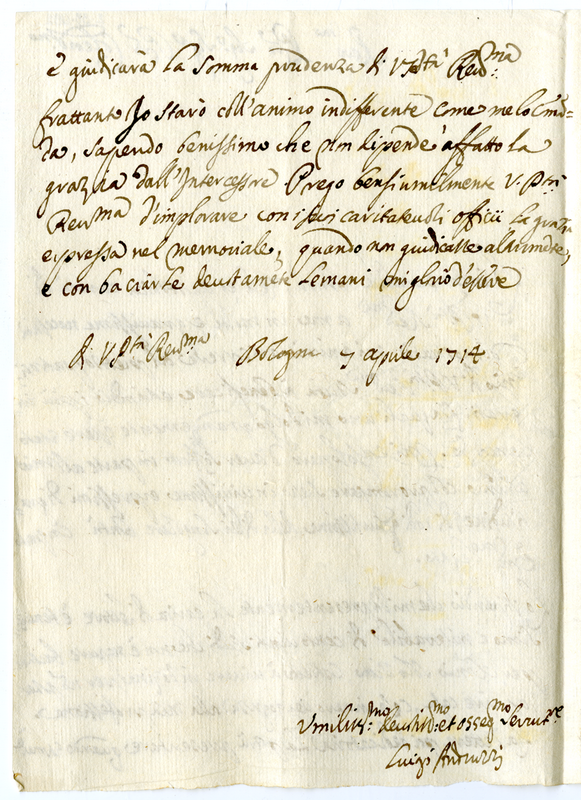 e giudicarà la somma prudenza di V. Ptà Reu:ma
frattanto Jo starò coll'animo indifferente come me lo Cmã=
da, sapendo benissimo che non dipende affatto la
grazia dall'Intercessre Prego bensi umilmente V. Ptà
Reuma d'implorare con i suoi caritateuoli officii la grazia
espressa nel memoriale, quando non giudicasse altrimẽte,
e con baciarle deuotamẽte le mani mi glorio d'essere
di V. Ptà Reuma Bologna 7 aprile 1714
Vmiliss:mo deuotiss:mo et osseqmo Seruitre
Luigi Andruzzi